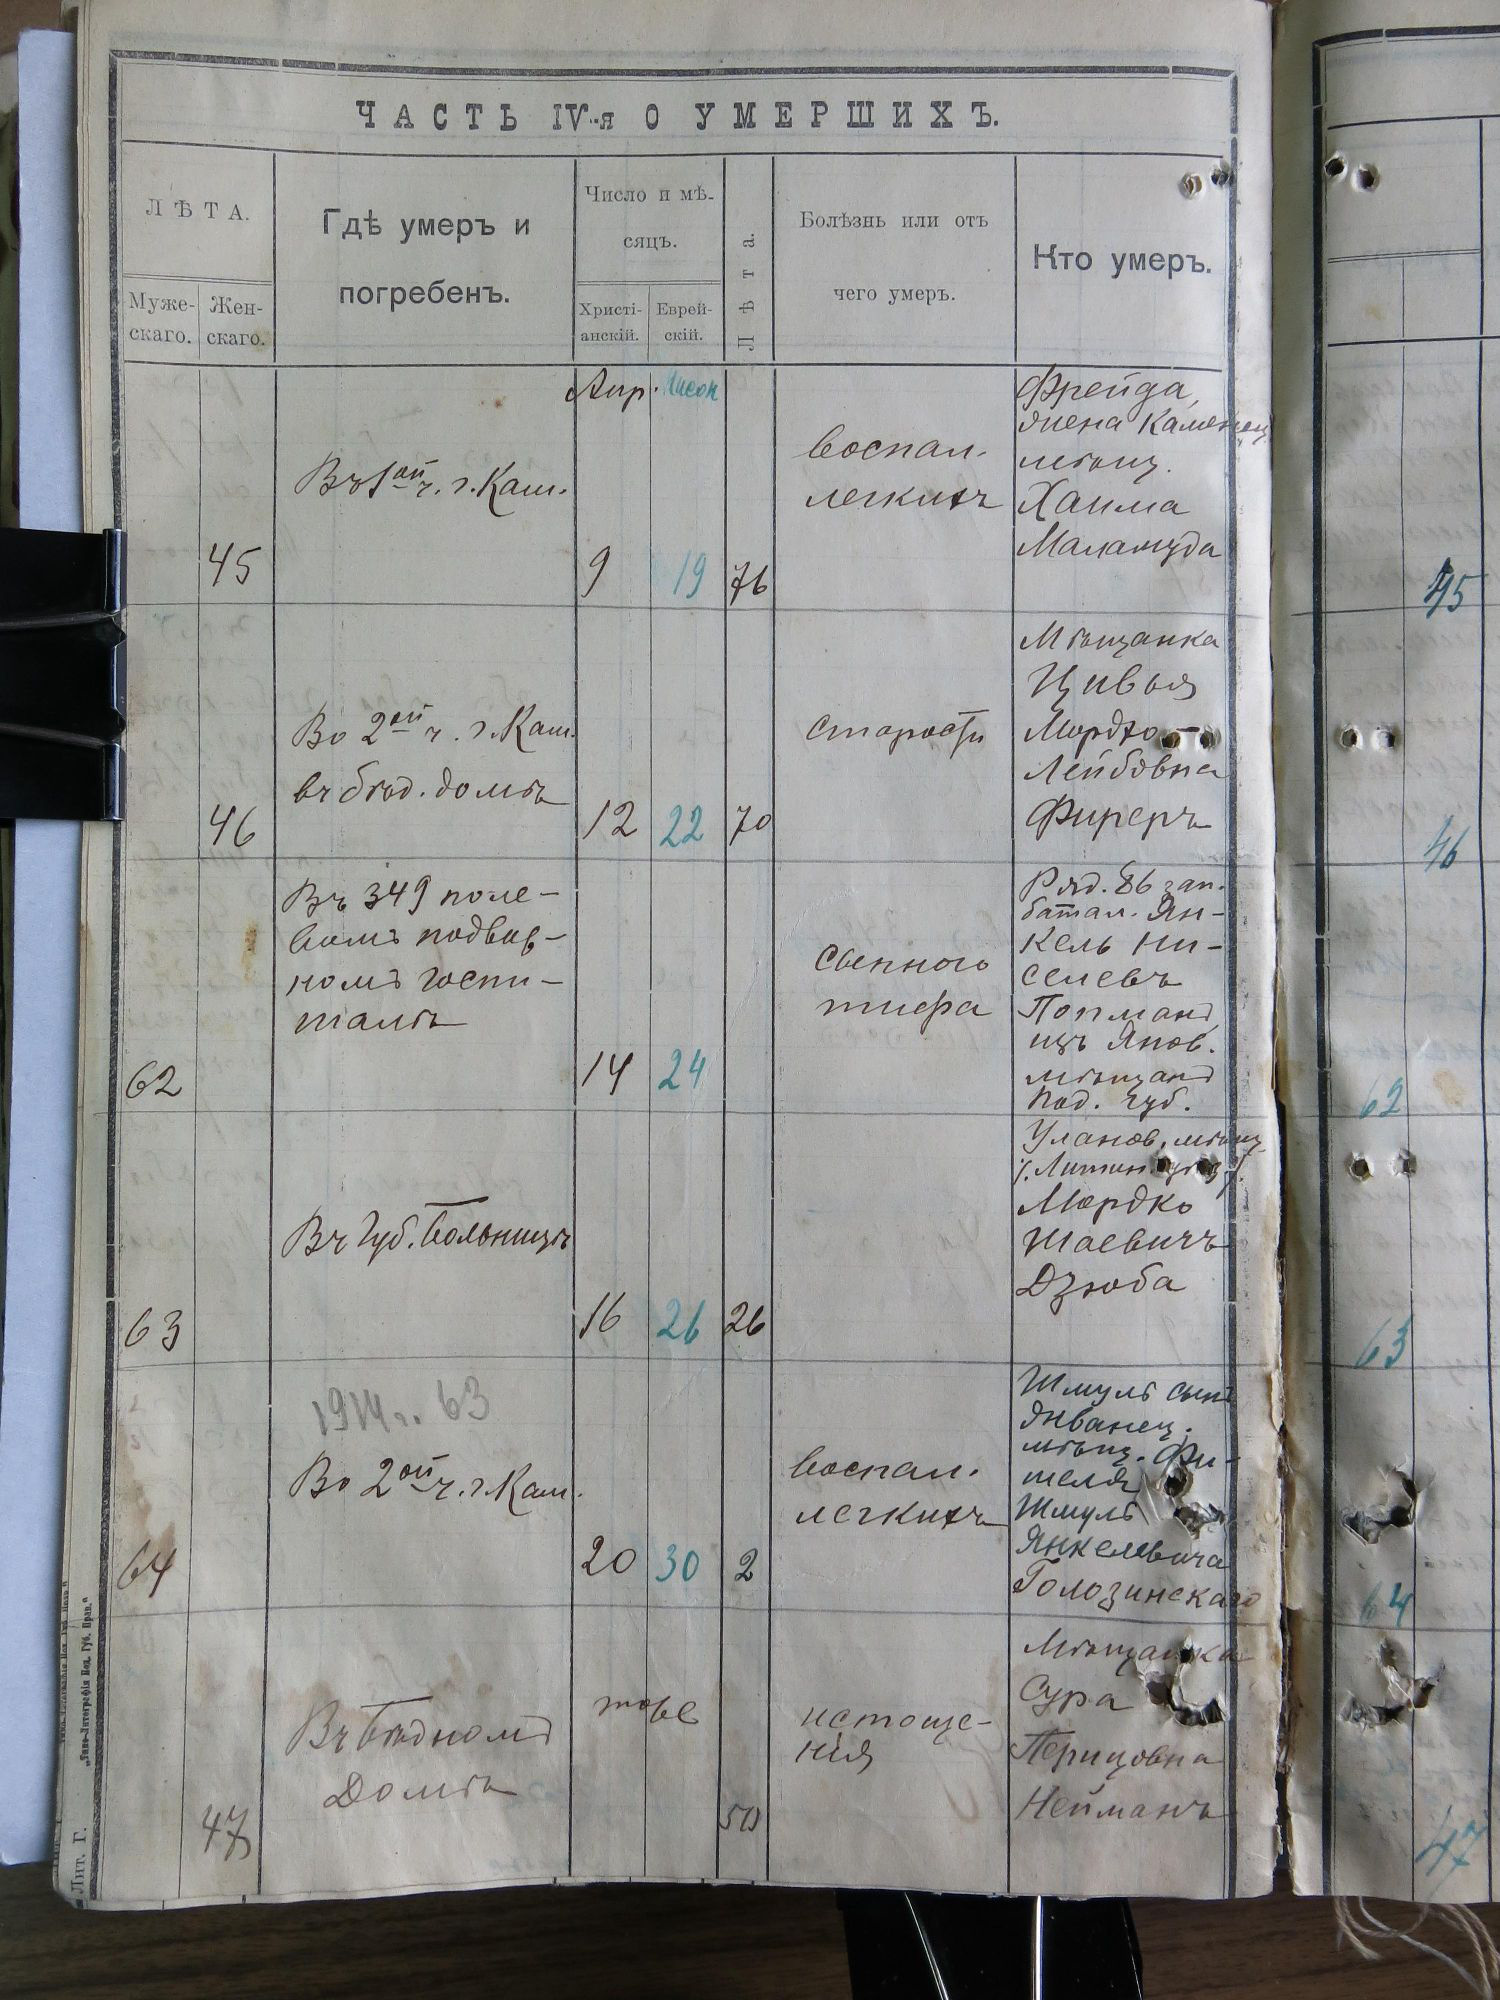 ЧАСТЬ IV-я О УМЕРШИХЪ.
ЛѢТА.
Муже-
скаго.
Жен-
скаго.
Гдѣ умеръ и
погребенъ.
Число и мѣ-
сяцъ.
Христі-
анскій.
Еврей-
скій.
Лѣта.
Болѣзнь или отъ
чего умеръ.
Кто умеръ.
Апр. Нисон
45
Въ 1ой ч. г. Кам.
9
19
76
воспал.
легкихъ
Фрейда,
жена Каменец.
мѣщ.
Хаима
Маламуда
45
46
Во 2ой ч. г. Кам.
въ бѣд. домѣ
12
22
70
старости
Мѣщанка
Цивья
Мордко-
Лейбовна
Фиреръ
46
62
Въ 349 поле-
вомъ подвиж-
номъ госпи-
талѣ
14
24
сыпного
тифа
Ряд. 86 зап.
батал. Ян-
кель Ни-
селевъ
изъ Янов.
мѣщанъ
Под. губ.
62
63
Въ Губ. больницѣ
16
26
26
Уланов. мѣщ.
Мордко
Шаевичъ
Дзюба
63
1914 г. 63
64
Во 2ой ч. г. Кам.
20
30
2
воспал.
легкихъ
Шмуль сынъ
Жванец.
мѣщ. Фи-
шеля
Шмуль
Янкелевича
Голозинскаго
64
47
Въ бѣдномъ
Домѣ
тоже
50
истоще-
нія
Мѣщанка
Сура
Перицовна
Нейманъ
47
Лит. Г.
„Типо-Литографія Под. Губ. Прав."